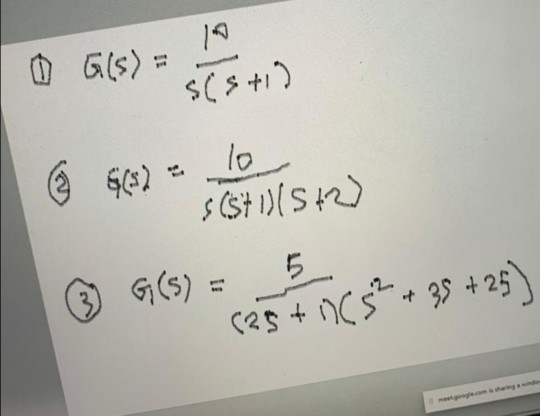 ① G(s) = 10 / s(s+1)
② G(s) = 10 / s(s+1)(s+2)
③ G(s) = 5 / (2s + 1)(s² + 3s + 25)
meet.google.com is sharing a window